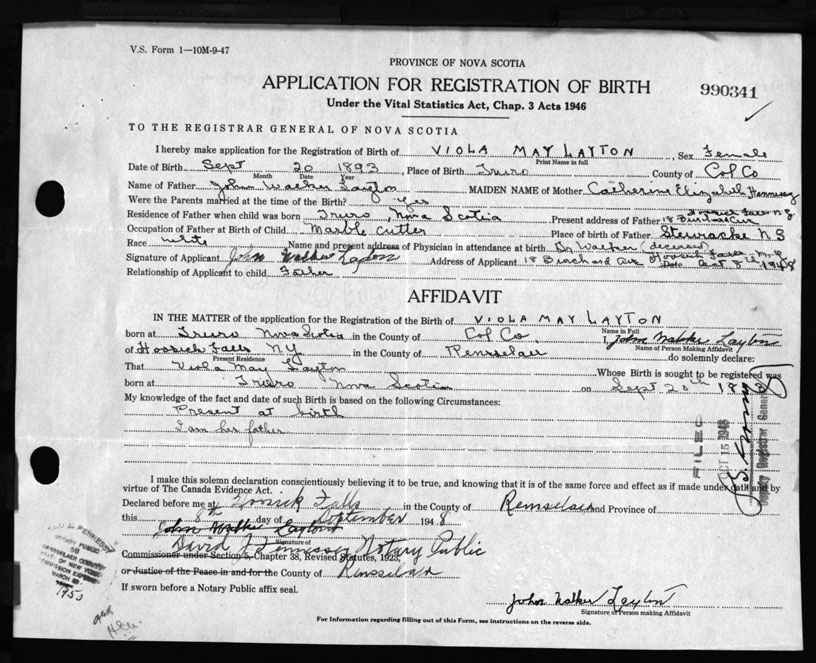 V.S. Form 1—10M-9-47
PROVINCE OF NOVA SCOTIA
APPLICATION FOR REGISTRATION OF BIRTH
990341
Under the Vital Statistics Act, Chap. 3 Acts 1946
TO THE REGISTRAR GENERAL OF NOVA SCOTIA
I hereby make application for the Registration of Birth of VIOLA MAY LAYTON, Sex Female
Print Name in full
Date of Birth Sept 20 1893, Place of Birth Truro County of Col Co
Month Date Year
Name of Father John Walker Layton MAIDEN NAME of Mother Catherine Elizabeth
Were the Parents married at the time of the Birth? Yes
Residence of Father when child was born Truro, Nova Scotia Present address of Father 18
Occupation of Father at Birth of Child Marble Cutter Place of birth of Father Stewiacke N S
Race White Name and present address of Physician in attendance at birth Dr Walker (deceased)
Signature of Applicant John Walker Layton Address of Applicant 18 Hoosick Falls N.Y. Date 1948
Relationship of Applicant to child Father
AFFIDAVIT
IN THE MATTER of the application for the Registration of the Birth of VIOLA MAY LAYTON
Name in Full
born at Truro Nova Scotia in the County of Col Co. I, John Walker Layton
Name of Person Making Affidavit
of Hoosick Falls N.Y. in the County of Rensselaer do solemnly declare:
Present Residence
That Viola May Layton Whose Birth is sought to be registered was
born at Truro Nova Scotia on Sept 20th 1893
My knowledge of the fact and date of such Birth is based on the following Circumstances:
Present at birth
I am her father
FILED
OCT 15 1948
Deputy Registrar General
I make this solemn declaration conscientiously believing it to be true, and knowing that it is of the same force and effect as if made under oath and by
virtue of The Canada Evidence Act.
Declared before me at Hoosick Falls in the County of Rensselaer and Province of
this 8th day of September 1948
John Walker Layton
Signature of
David J Hennessey Notary Public
Commissioner under Section 5, Chapter 38, Revised Statutes, 1923,
or Justice of the Peace in and for the County of Rensselaer
If sworn before a Notary Public affix seal.
NOTARY PUBLIC
1950
John Walker Layton
Signature of Person making Affidavit
For Information regarding filling out of this Form, see instructions on the reverse side.